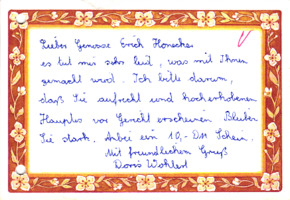 Lieber Genosse Erich Honecker
es tut mir sehr leid, was mit Ihnen
gemacht wird. Ich bitte darum,
daß Sie aufrecht und hocherhobenen
Hauptes vor Gericht erscheinen. Bleiben
Sie stark. Anbei ein 10,- DM Schein.
Mit freundlichen Gruß
Doris Wohlert